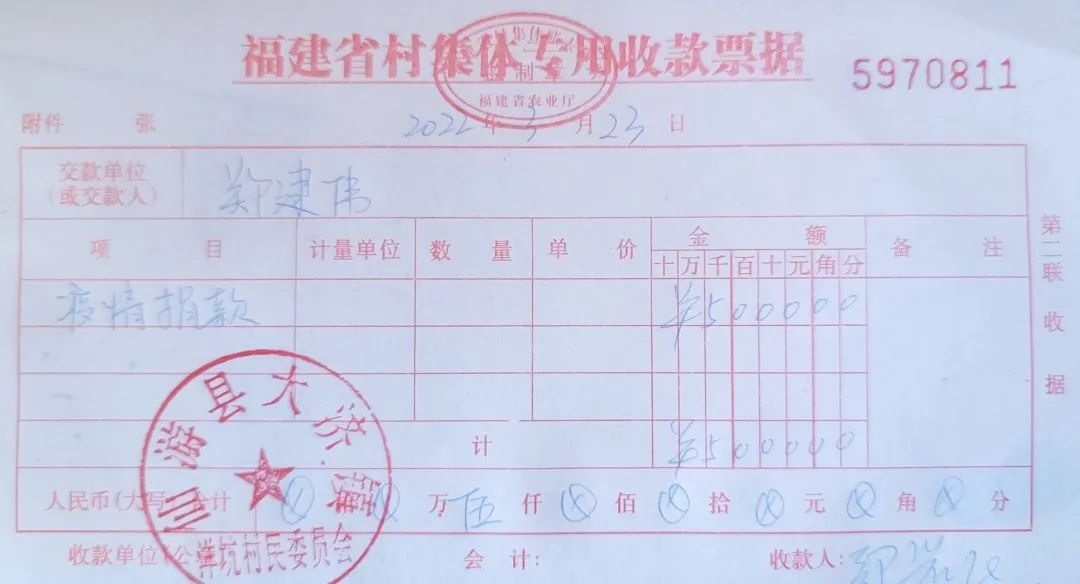 福建省村集体专用收款票据
福建省农业厅
5970811
附件 张 2022年3月23日
交款单位
(或交款人)
郑建伟
项 目 计量单位 数 量 单 价 金 额 备 注
十万千百十元角分
疫情捐款 ¥500000
计 ¥500000
人民币(大写)合计 ⊗ ⊗万伍仟⊗佰⊗拾⊗元⊗角⊗分
收款单位(公章) 会 计: 收款人:
仙游县大济镇
村民委员会
第二联 收据